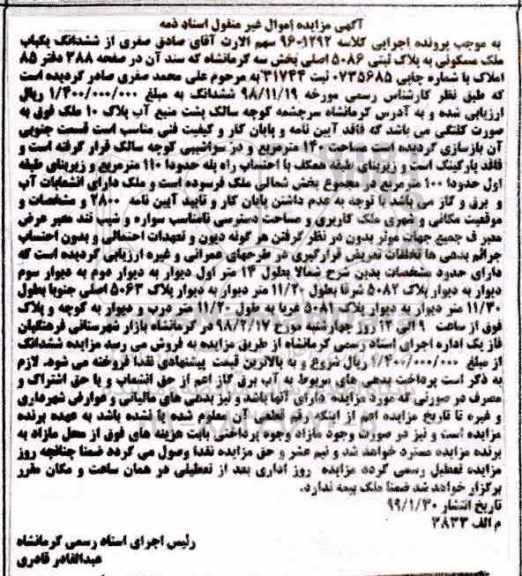 آگهی مزایده اموال غیر منقول اسناد ذمه
به موجب پرونده اجرایی کلاسه 9601292 سهم الارث آقای صادق صفری از ششدانگ یکباب
ملک مسکونی به پلاک ثبتی 5086 اصلی بخش سه کرمانشاه که سند آن در صفحه 388 دفتر 85
املاک با شماره چاپی 0735685 ثبت 31744 به مرحوم علی محمد صفری صادر گردیده است
که طبق نظر کارشناس رسمی مورخه 98/11/19 ششدانگ به مبلغ 1/400/000/000 ریال
ارزیابی شده و به آدرس کرمانشاه سرچشمه کوچه سالک پشت منبع آب پلاک 10 ملک فوق به
صورت کلنگی می باشد که فاقد آیین نامه و پایان کار و کیفیت فنی مناسب است قسمت جنوبی
آن بازسازی گردیده است مساحت 140 مترمربع و در سراشیبی کوچه سالک قرار گرفته است و
فاقد پارکینگ است و زیربنای طبقه همکف با احتساب راه پله حدودا 110 مترمربع و زیربنای طبقه
اول حدودا 100 مترمربع در مجموع بخش شمالی ملک فرسوده است و ملک دارای انشعابات آب
و برق و گاز می باشد با توجه به عدم داشتن پایان کار و تایید آیین نامه 2800 و مشخصات و
موقعیت مکانی و شهری ملک کاربری و مساحت دسترسی نامناسب سواره و شیب تند معبر عرض
معبر ف جمیع جهات موثر بدون در نظر گرفتن هر گونه دیون و تعهدات احتمالی و بدون احتساب
جرائم بدهی ها تخلفات تعریض قرارگیری در طرحهای عمرانی و غیره ارزیابی گردیده است که
دارای حدود مشخصات بدین شرح شمالا بطول 14 متر اول دیوار به دیوار دوم به دیوار سوم
دیوار به دیوار پلاک 5082 شرقا بطول 11/20 متر دیوار به دیوار پلاک 5063 اصلی جنوبا بطول
11/30 متر دیوار به دیوار پلاک 5081 غربا به طول 11/20 متر درب و دیوار به کوچه و پلاک
فوق از ساعت 9 الی 12 روز چهارشنبه مورخ 98/2/17 در کرمانشاه بازار شهرستانی فرهنگیان
فاز یک اداره اجرای اسناد رسمی کرمانشاه از طریق مزایده به فروش می رسد مزایده ششدانگ
از مبلغ 1/400/000/000 ریال شروع و به بالاترین قیمت پیشنهادی نقدا فروخته می شود. لازم
به ذکر است پرداخت بدهی های مربوط به آب برق گاز اعم از حق انشعاب و یا حق اشتراک و
مصرف در صورتی که مورد مزایده دارای آنها باشد و نیز بدهی های مالیاتی و عوارض شهرداری
و غیره تا تاریخ مزایده اعم از اینکه رقم قطعی آن معلوم شده یا نشده باشد به عهده برنده
مزایده است و نیز در صورت وجود مازاد وجوه پرداختی بابت هزینه های فوق از محل مازاد به
برنده مزایده مسترد خواهد شد و نیم عشر و حق مزایده نقدا وصول می گردد ضمنا چنانچه روز
مزایده تعطیل رسمی گردد مزایده روز اداری بعد از تعطیلی در همان ساعت و مکان مقرر
برگزار خواهد شد ضمنا ملک بیمه ندارد.
تاریخ انتشار 99/1/30
م الف 3833
رئیس اجرای اسناد رسمی کرمانشاه
عبدالقادر قادری